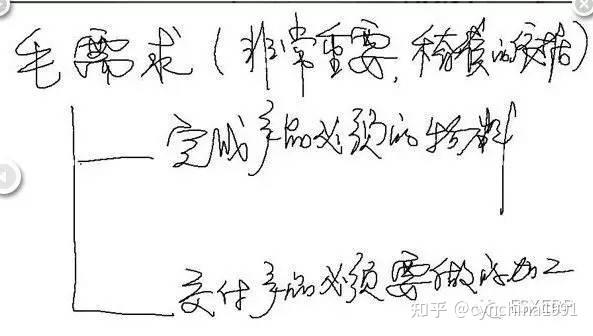 毛需求(非常重要,核算的依据)
完成产品必须的物料
交付产品必须要做的加工
知乎 @cynchina1991